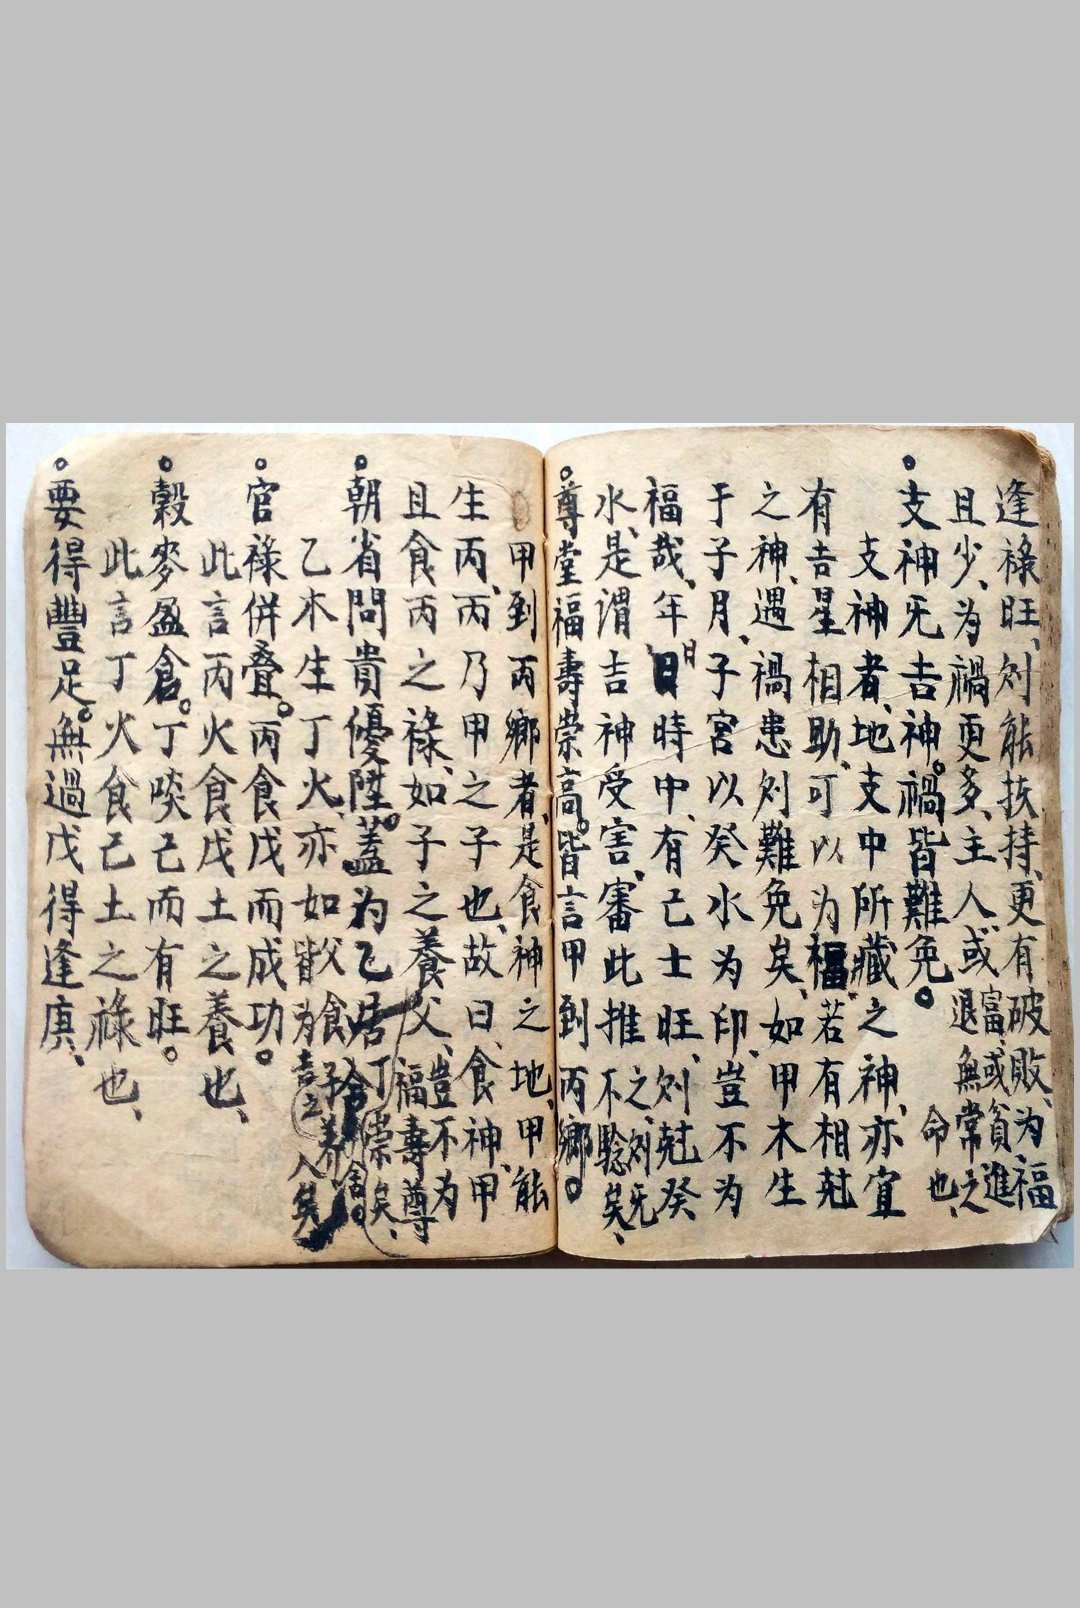 逢祿旺、則能扶持、更有破敗、为福
且少、为禍更多、主人或富或貧進退無常之命也、
支神旡吉神。禍皆難免。
支神者、地支中所藏之神、亦宜
有吉星相助、可以为福、若有相尅
之神、遇禍患則難免矣、如甲木生
于子月、子宮以癸水为印、豈不为
福哉、年日時中、有己土旺、則尅癸
水、是謂吉神受害、審此推之、則旡不騐矣、
尊堂福壽崇高。皆言甲到丙鄉。
甲到丙鄉者、是食神之地、甲能
生丙、丙乃甲之子也、故曰食神、甲
且食丙之祿、如子之養父、豈不为福壽尊崇矣、
朝省問貴優陞。蓋为乙居丁舍。
乙木生丁火、亦如父食子養
官祿併叠。丙食戊而成功。
此言丙火食戊土之養也、
穀麥盈倉。丁啖己而有旺。
此言丁火食己土之祿也、
要得豐足。無過戊得逢庚、